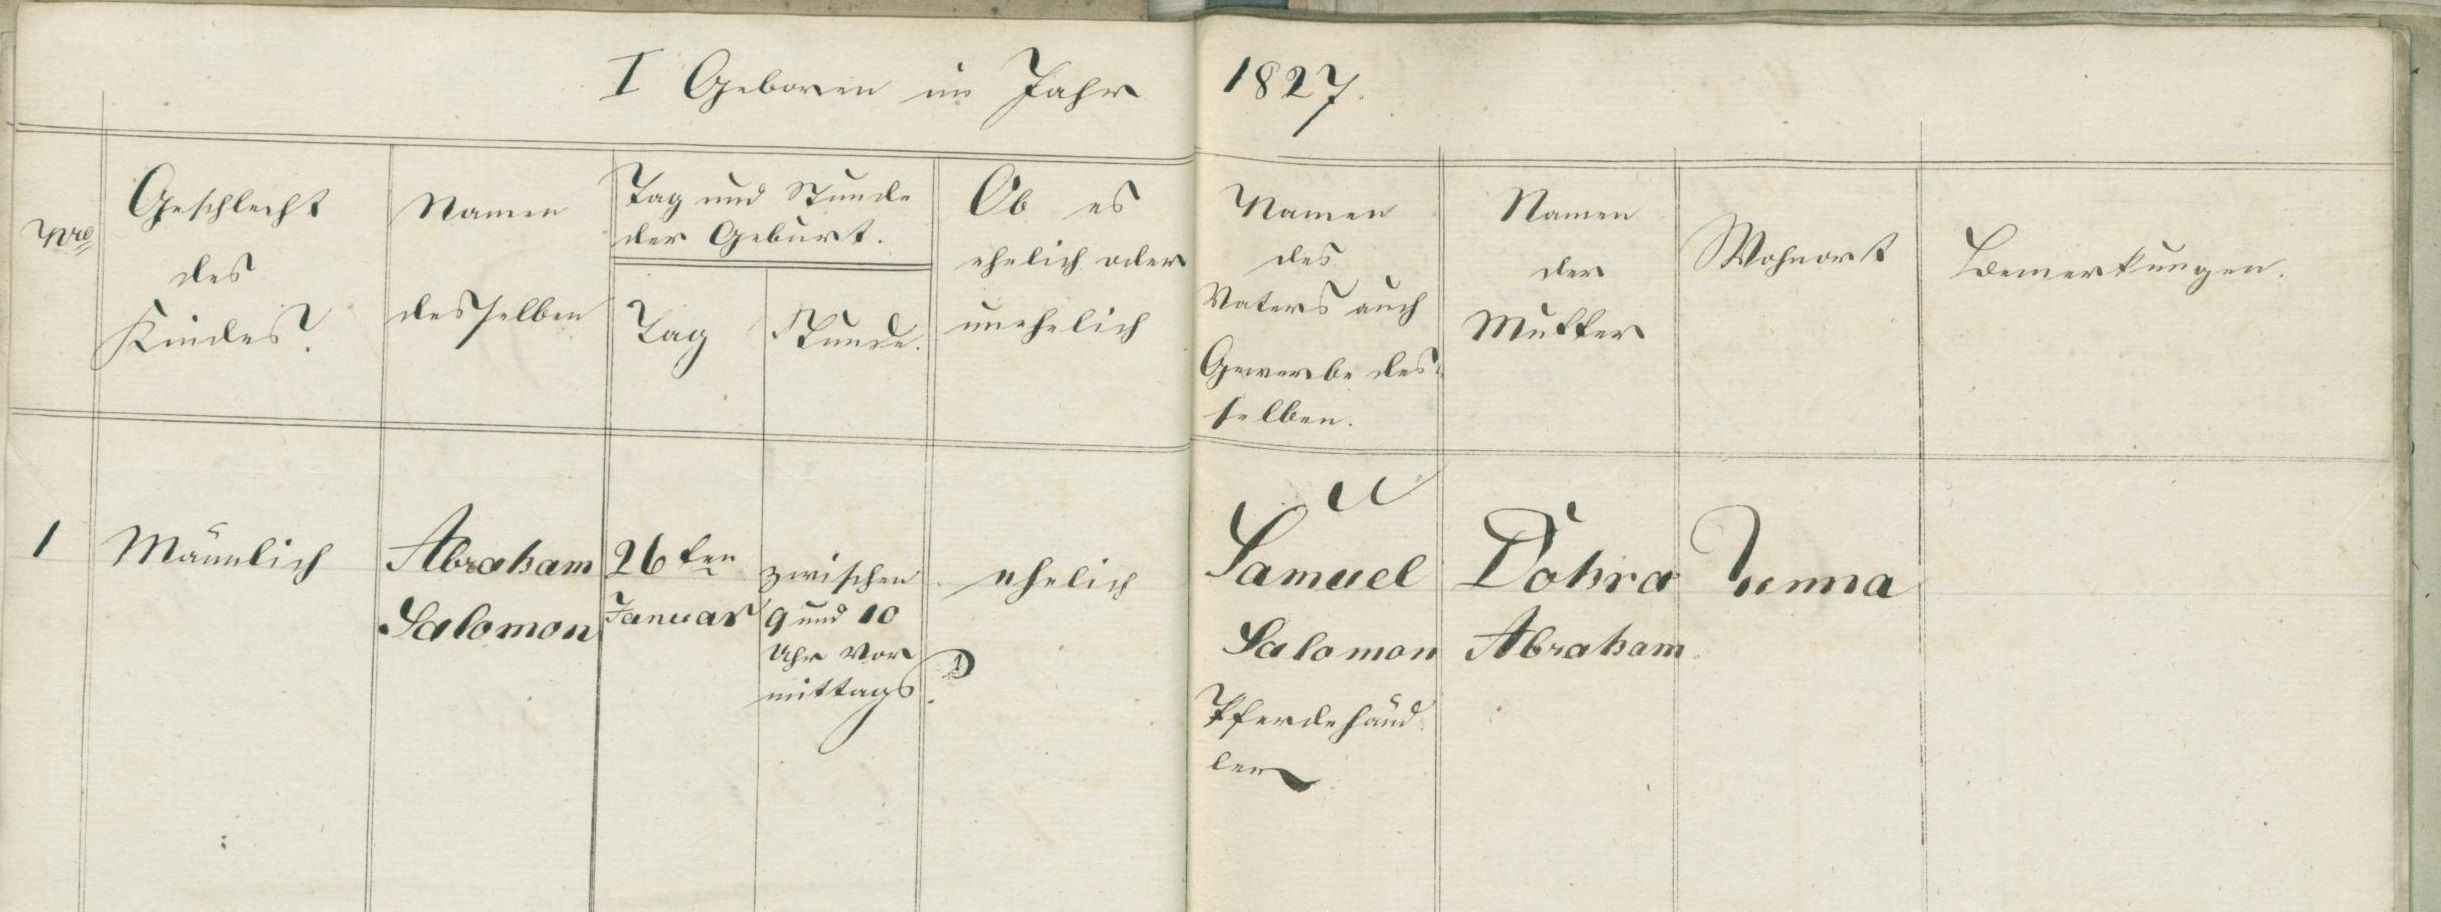 I Geboren im Jahr 1827.
Nro
Geschlecht
des
Kindes
Namen
desselben
Tag und Stunde
der Geburt.
Tag
Stunde.
Ob es
ehelich oder
unehelich
Namen
des
Vaters auch
Gewerbe des=
selben.
Namen
der
Mutter
Wohnort
Bemerkungen.
1
Männlich
Abraham
Salomon
26ten
Januar
zwischen
9 und 10
Uhr Vor
mittags.
ehelich
Samuel
Salomon
Pferdehänd
ler
Dohra
Abraham
Unna